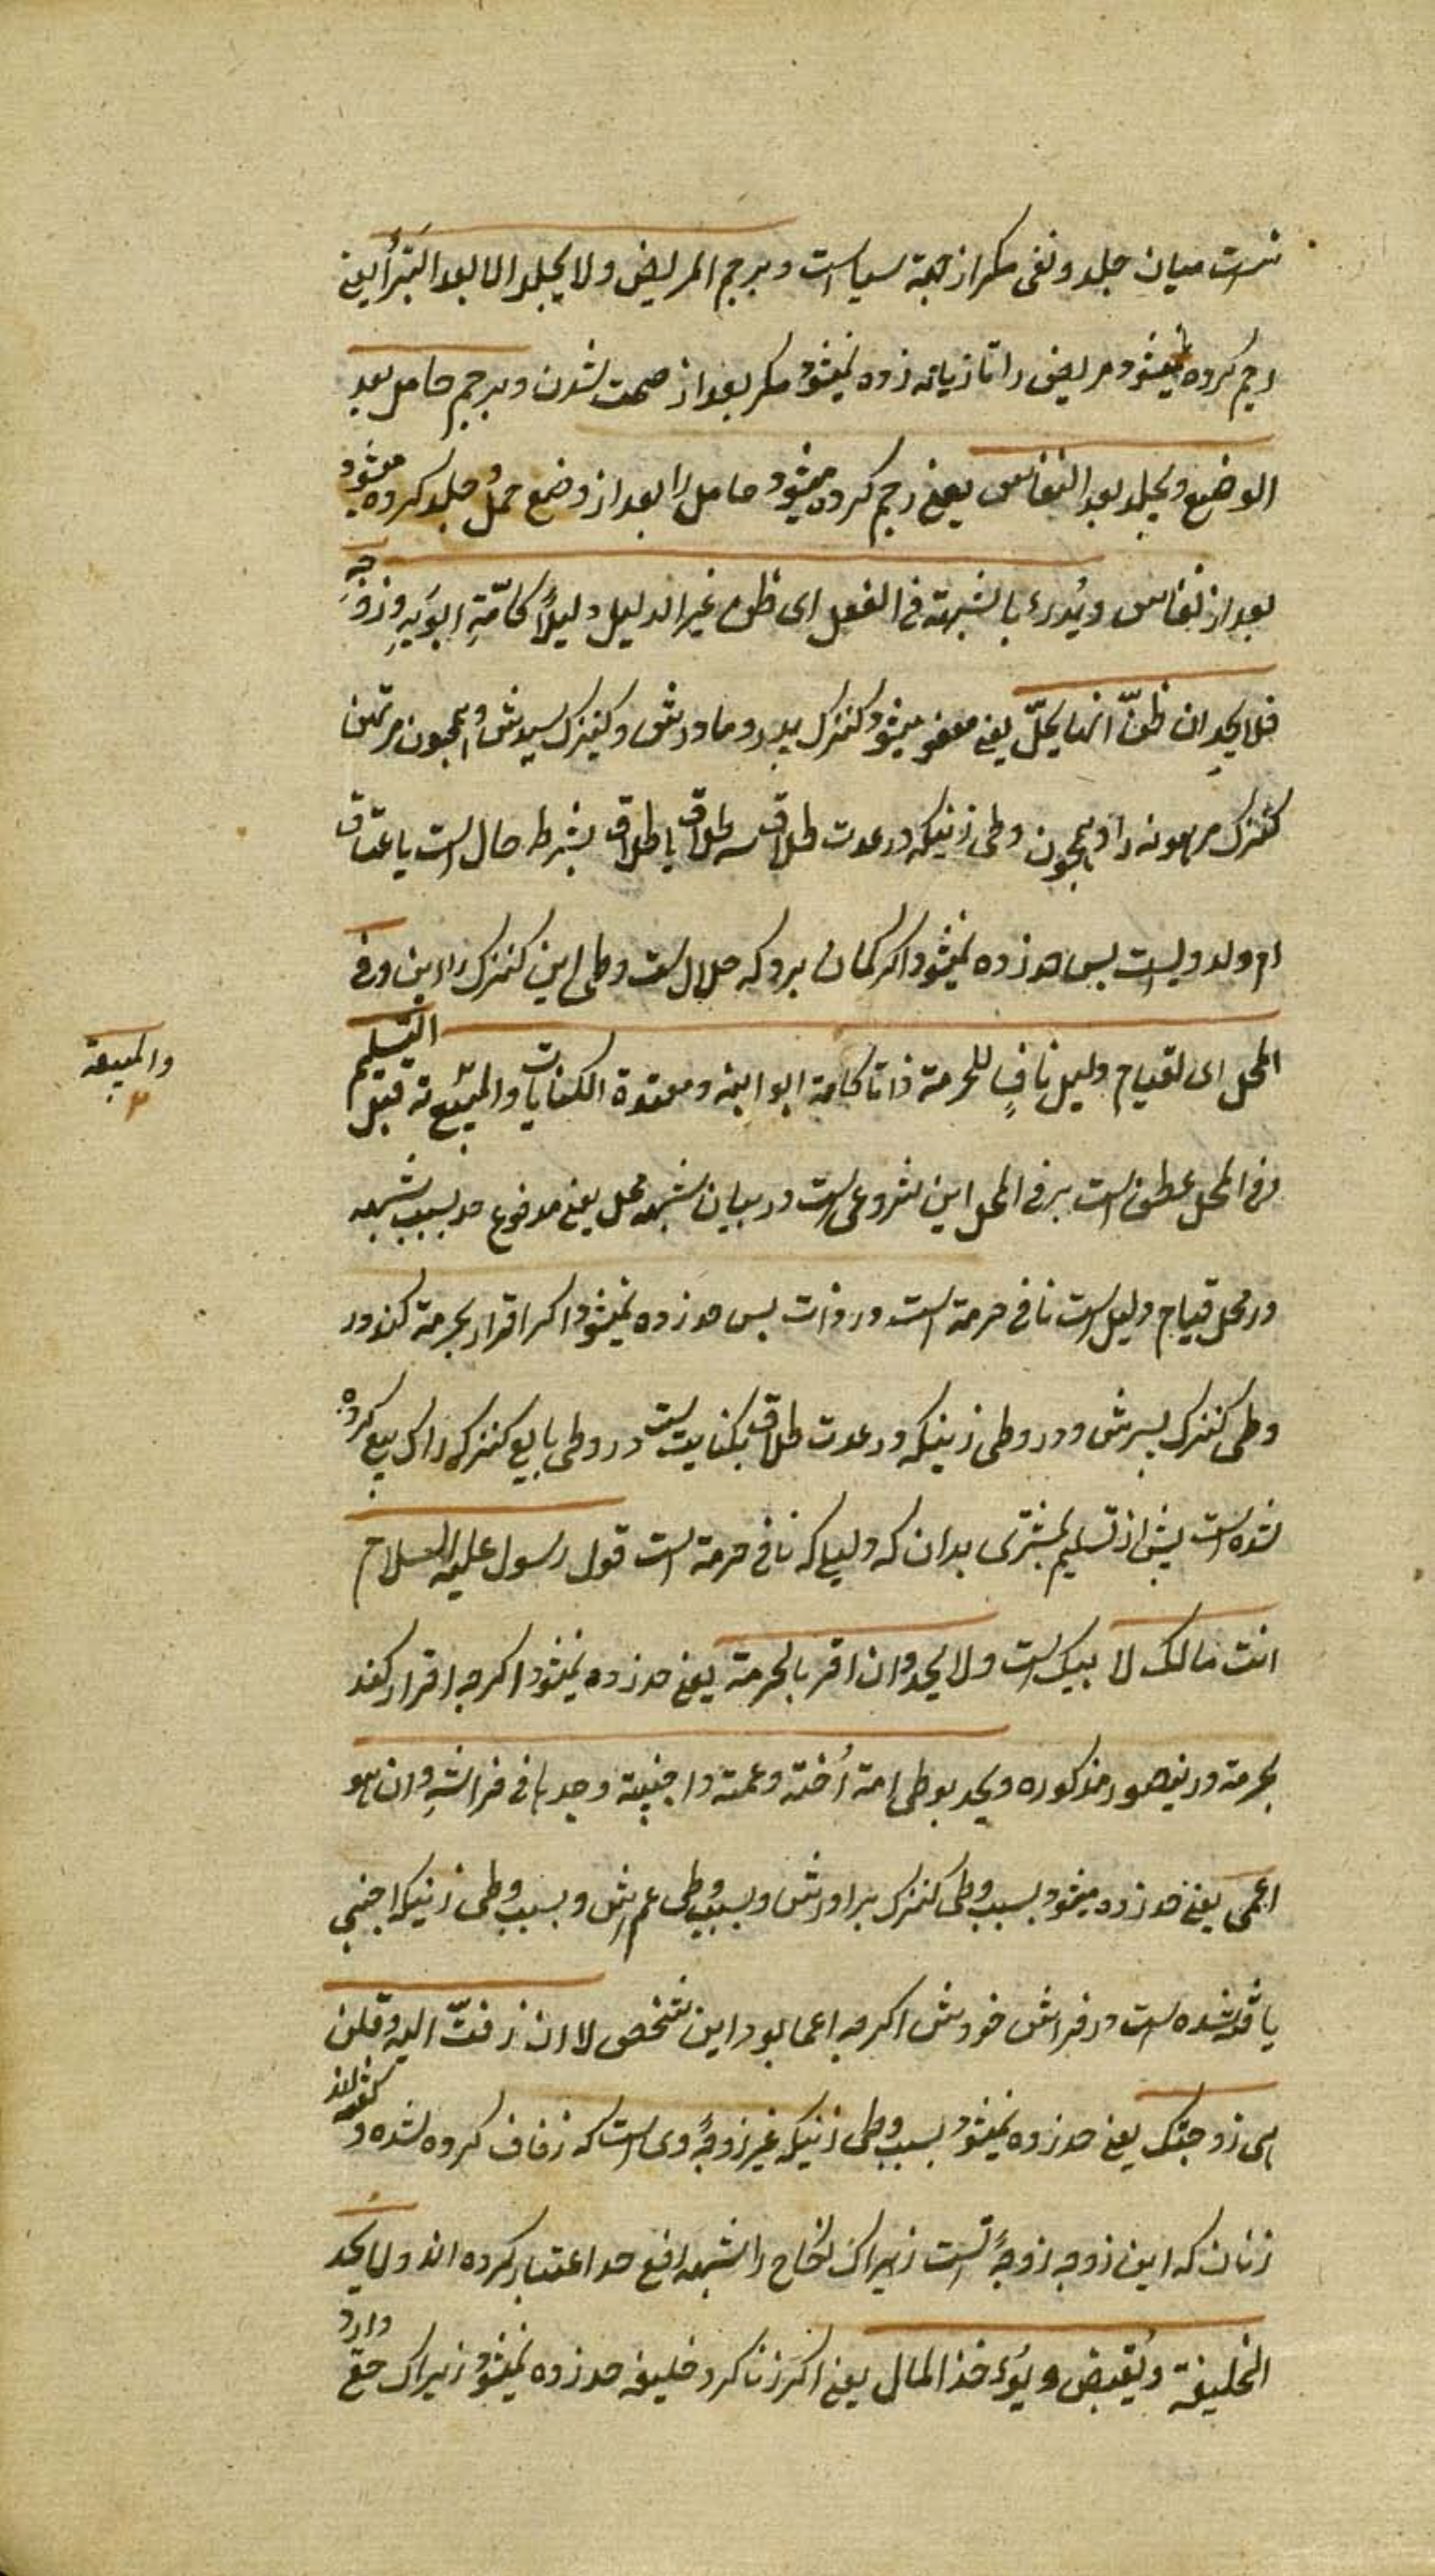 نیست میان جلد ونفی مکر از جهة سیاست ویرجم المریض ولا یجلد الا بعد البَرأ یعنی
رجم کرده میشود مریض را تازیانه زده نمیشود مکر بعد از صحت شدن ویرجم حامل بعد
الوضع ویجلد بعد النفاس یعنی رجم کرده میشود حامل را بعد از وضع حمل وجلد کرده میشود
بعد از نفاس ویُدرء بالشبهة فی الفعل ای ظن غیر الدلیل دلیلاً کامَةِ ابوَیهِ وزوجِهِ
فلا یحد ان ظنّ انها یحلّ یعنی میشود کنیزک پدر وما درش وکنیزک سیدش وهمچون مرتهن
کنیزک مرهونه را وهمچون وطی زنیکه در عدت طلاق سه طلاق یا طلاق بشرط حال است یا عتاق
ام ولد ویست پس حد زده نمیشود اکر کمان برد که حلال ست وطی این کنیزک را این وفی
المحل ای لقیام دلیل نافٍ للحرمة ذاتا کامة ابو ابنه ومعتدة الکنایات والمبیعة قبل التسلیم
والمبیعة
وفی المحل عطف است برفی المحل این شروعی است در بیان شبهه محل یعنی مدفوع حد بسبب شبهه
در محل قیام دلیل است نافی حرمة است در ذات پس حد زده نمیشود اکر اقرار بحرمة کند در
وطی کنیزک پسرش ودر وطی زنیکه در عدت طلاق بکنایت ست در وطی بایع کنیزکه را ک بیع کرده
شده است پیش از تسلیم بمشتری بدان که دلیلے که نافی حرمة است قول رسول علیه السلام
انت مالک لا بیک است ولا یحد وان اقر بالحرمة یعنی حد زده نمیشود اکر چه اقرار کند
بحرمة در ینصور مذکوره ویحد بوطی امة اُخته وعمته واجنبیة وجدها فی فراشهِ وان هو
اعمی یعنی حد زده میشود بسبب وطی کنیزک برادرش وبسبب وطی عم اش وبسبب وطی زنیکه اجنبی
یافته شده ست در فراش خودش اکر چه اعما بود این شخص لا ان زفتّ الیه وقلن
هی زوجتک یعنی حد زده نمیشود بسبب وطی زنیکه غیر زوجهٔ وی است که زفاف کرده شده وکفته اند
زنان که این زوجه زوجهٔ تست زیراک نکاح را شبهه افع حد اعتبار کرده اند ولا یحد
الخلیفة ویُقبض ویُوءخذ المال یعنی اکر زنا کرد خلیفه حد زده نمیشود زیراک حق دارد